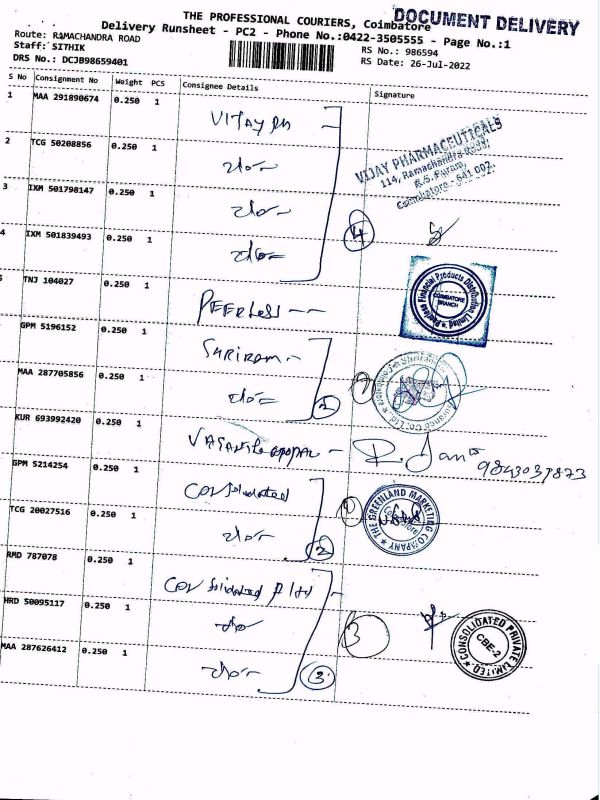 THE PROFESSIONAL COURIERS, Coimbatore
DOCUMENT DELIVERY
Delivery Runsheet - PC2 - Phone No.:0422-3505555 - Page No.:1
Route: RAMACHANDRA ROAD
RS No.: 986594
Staff: SITHIK
RS Date: 26-Jul-2022
DRS No.: DCJB98659401
S No Consignment No Weight PCS Consignee Details Signature
1 MAA 291890674 0.250 1
VIJAY PHARMACEUTICALS
114, Ramachandra Road,
R.S. Puram,
Coimbatore - 641 002.
2 TCG 50208856 0.250 1
3 IXM 501798147 0.250 1
4 IXM 501839493 0.250 1
4
TNJ 104027 0.250 1 PEERLESS
Peerless Financial Products Distribution Limited
COIMBATORE BRANCH
GPM 5196152 0.250 1 SHRIRAM
MAA 287705856 0.250 1
2
KUR 693992420 0.250 1
GPM 5214254 0.250 1 Consolidated
THE GREENLAND MARKETING COMPANY
TCG 20027516 0.250 1
2
RMD 787078 0.250 1 Consolidated
HRD 50095117 0.250 1
CONSOLIDATED PRIVATE LIMITED
CBE-2
MAA 287626412 0.250 1
3